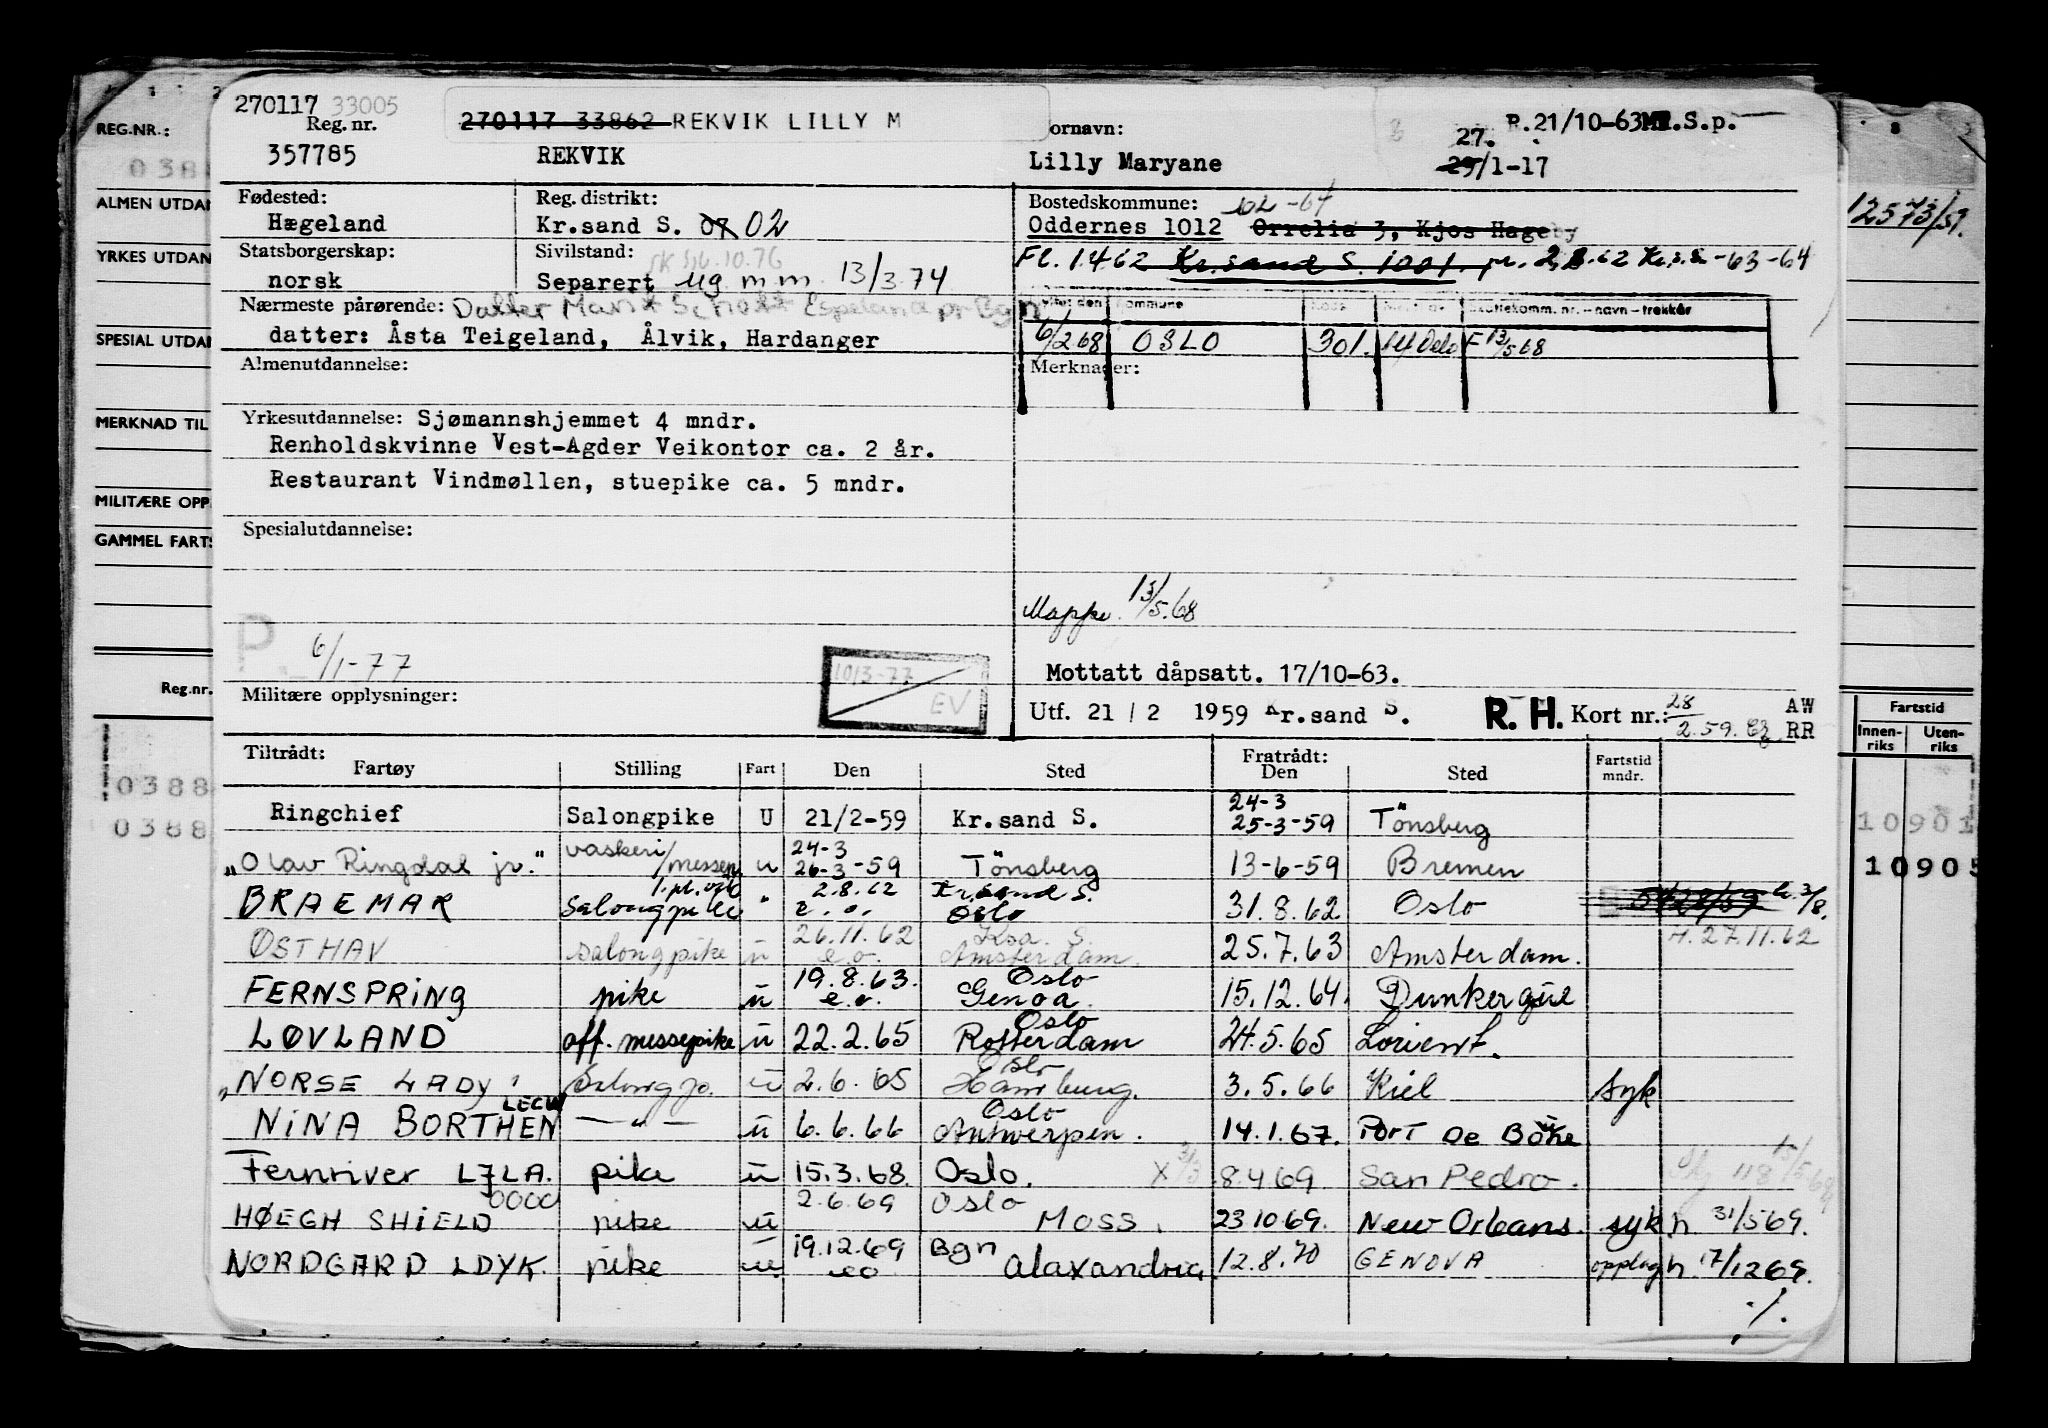 270117 33005
Reg. nr.
270117 33862 REKVIK LILLY M
R.21/10-63 M.S.p.
REG.NR.:
357785 REKVIK
ornavn:
Lilly Maryane
27.
29/1-17
Fødested: Hægeland
Reg. distrikt: Kr.sand S. 07 02
Bostedskommune: 102-64
Oddernes 1012 Orrelia 3, Kjos Hageby
12573/59.
ALMEN UTDAN
YRKES UTDAN
Statsborgerskap: norsk
Sivilstand: Separert ug m m 13/3.74
Fl. 1.4 62 Kr.sand S. 1001.
-63-64
Nærmeste pårørende: Datter
datter: Åsta Teigeland, Ålvik, Hardanger
ommune
Skattekomm. nr. - navn - trekkår
6/2 68 OSLO 301. F 13/5 68
SPESIAL UTDAN
Almenutdannelse:
Merknader:
MERKNAD TIL
Yrkesutdannelse: Sjømannshjemmet 4 mndr.
Renholdskvinne Vest-Agder Veikontor ca. 2 år.
Restaurant Vindmøllen, stuepike ca. 5 mndr.
MILITÆRE OPP
Spesialutdannelse:
GAMMEL FARTS
Mappe 13/5.68
P. 6/1-77
10/3-77
EV
Mottatt dåpsatt. 17/10-63.
Reg.nr.
Militære opplysninger:
Utf. 21 / 2 1959 Kr.sand S. R. H. Kort nr.: 28/2.59. AW RR
Fartstid
Innenriks Utenriks
Tiltrådt: Fratrådt:
Fartøy Stilling Fart Den Sted Den Sted Fartstid mndr.
0388
0388
10901
10905
Ringchief Salongpike U 21/2-59 Kr.sand S. 24-3 25-3-59 Tönsberg
"Olav Ringdal jr." vaskeri/messep. u 24-3 26-3-59 Tönsberg 13-6-59 Bremen
BRAEMAR salongpike " 2.8.62 e.o. Kr.sand S. Oslo 31.8.62 Oslo
ØSTHAV salongpike u 26.11.62 e.o. Ksa. S. Amsterdam 25.7.63 Amsterdam. H. 27.11.62
FERNSPRING pike u 19.8.63. e.o. Oslo Genoa. 15.12.64. Dunkerque
LØVLAND off. messepike u 22.2.65 Oslo Rotterdam 24.5.65 Lorient.
"NORSE LADY" Salongp. u 2.6.65 Oslo Hamburg. 3.5.66 Kiel syk
NINA BORTHEN LECW — " — u 6.6.66 Oslo Antwerpen. 14.1.67. Port De Bouke
Fernriver LJLA. pike u 15.3.68. Oslo. X 31/3 8.4 69 San Pedro. 118 15/5.68
HØEGH SHIELD pike u 2.6.69 Oslo Moss. 23 10 69. New Orleans. syk h. 31/5 69.
NORDGARD LDYK. pike u 19.12.69 eo Bgn Alaxandria 12.8.70 GENOVA opplag h. 17/12 69.
./.